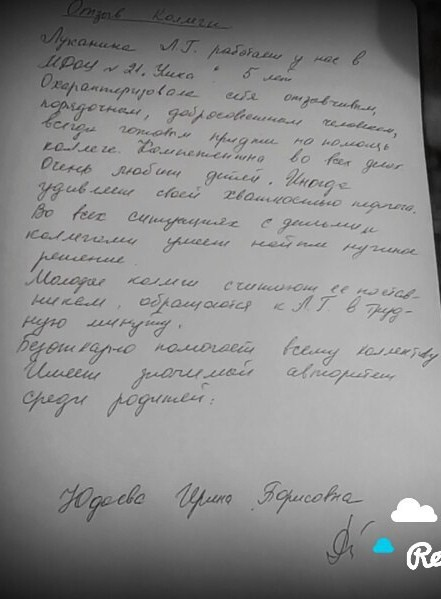 Отзыв коллеги
Луканина Л.Г. работает у нас в
МДОУ № 21 " 5 лет
Охарактеризовала себя отзывчивым,
порядочным, добросовестным человеком,
всегда готовым придти на помощь
коллеге. Компетентна во всех делах
Очень любит детей. Иногда
удивляет своей хваткостью педагога.
Во всех ситуациях с детьми и
коллегами умеет найти нужное
решение.
Молодые коллеги считают ее настав-
ником, обращаются к Л.Г в труд-
ную минуту.
Безотказно помогает всему коллективу
Имеет значимой авторитет
среди родителей.
Юдаева Ирина Борисовна
Re